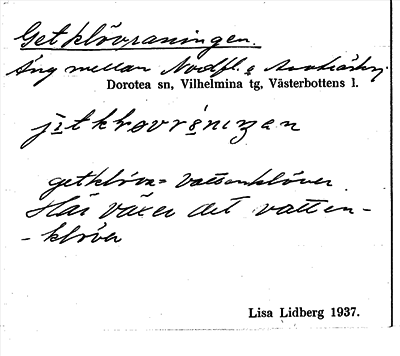 Getklövraningen.
Äng mellan Nordfl. o
Dorotea sn, Vilhelmina tg, Västerbottens l.
getklöva = vattenklöver
Här växer det vatten-
- klöver
Lisa Lidberg 1937.